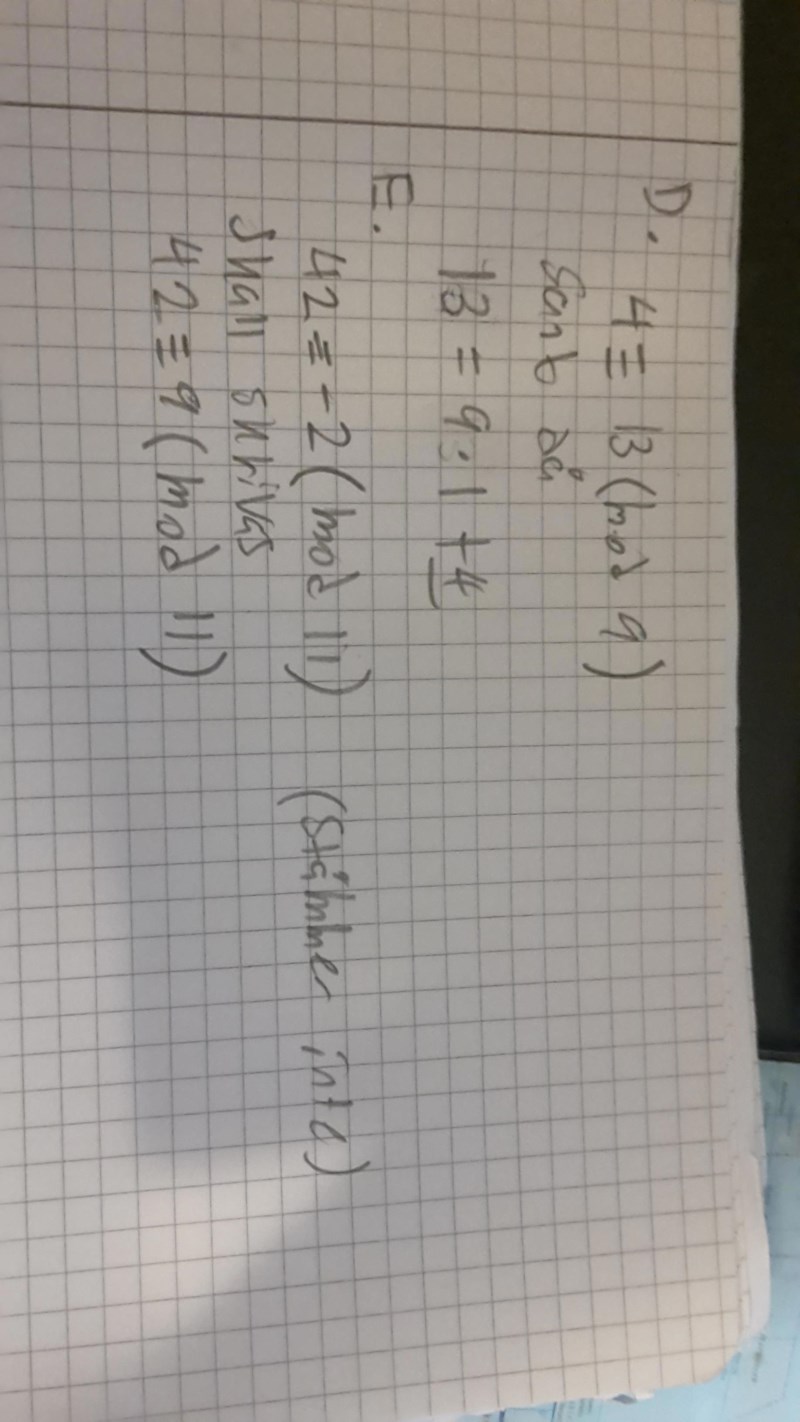 D. 4 ≡ 13 (mod 9)
Sant då
13 = 9 · 1 + 4
E.
42 ≡ -2 (mod 11) (stämmer inte)
Skall skrivas
42 ≡ 9 (mod 11)